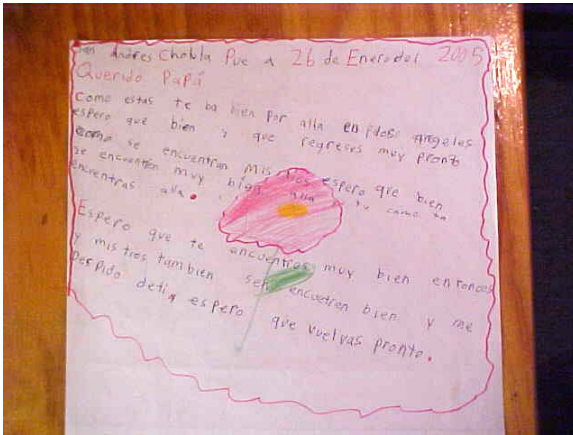 San Andres Cholula Pue a 26 de Enero del 2005
Querido Papá
Como estas te ba bien por alla en los angeles
espero que bien y que regreses muy pronto
como se encuentran mis tios espero que bien
se encuentren muy bien alla y tu como te
encuentras alla.
Espero que te encuentras muy bien entonces
y mis tios tambien se encuetren bien y me
Despido de tia espero que vuelvas pronto.